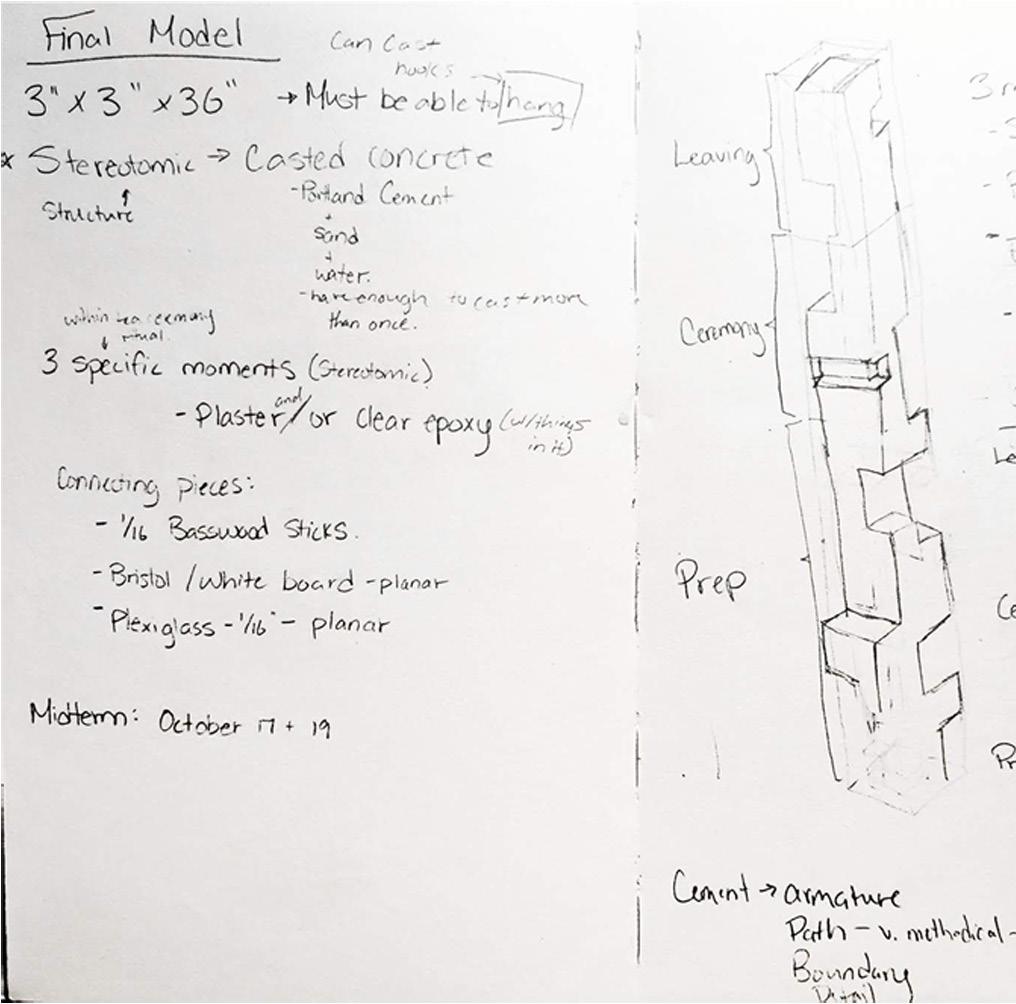 Final Model
Can Cast
hooks
3" x 3" x 36" → Must be able to hang
x Stereotomic → Casted concrete
Structure
- Portland Cement
+
sand
+
water.
- have enough to cast more
than once.
within tea ceremony
ritual.
3 specific moments (Stereotomic)
- Plaster and/or Clear epoxy (w/things
in it)
Connecting pieces:
- 1/16 Basswood Sticks.
- Bristol / White board - planar
- Plexiglass - 1/16" - planar
Midterm: October 17 + 19
Leaving
Ceremony
Prep
3
Le
Ce
Pr
Cement → armature
Path - v. methodical -
Boundary
Detail